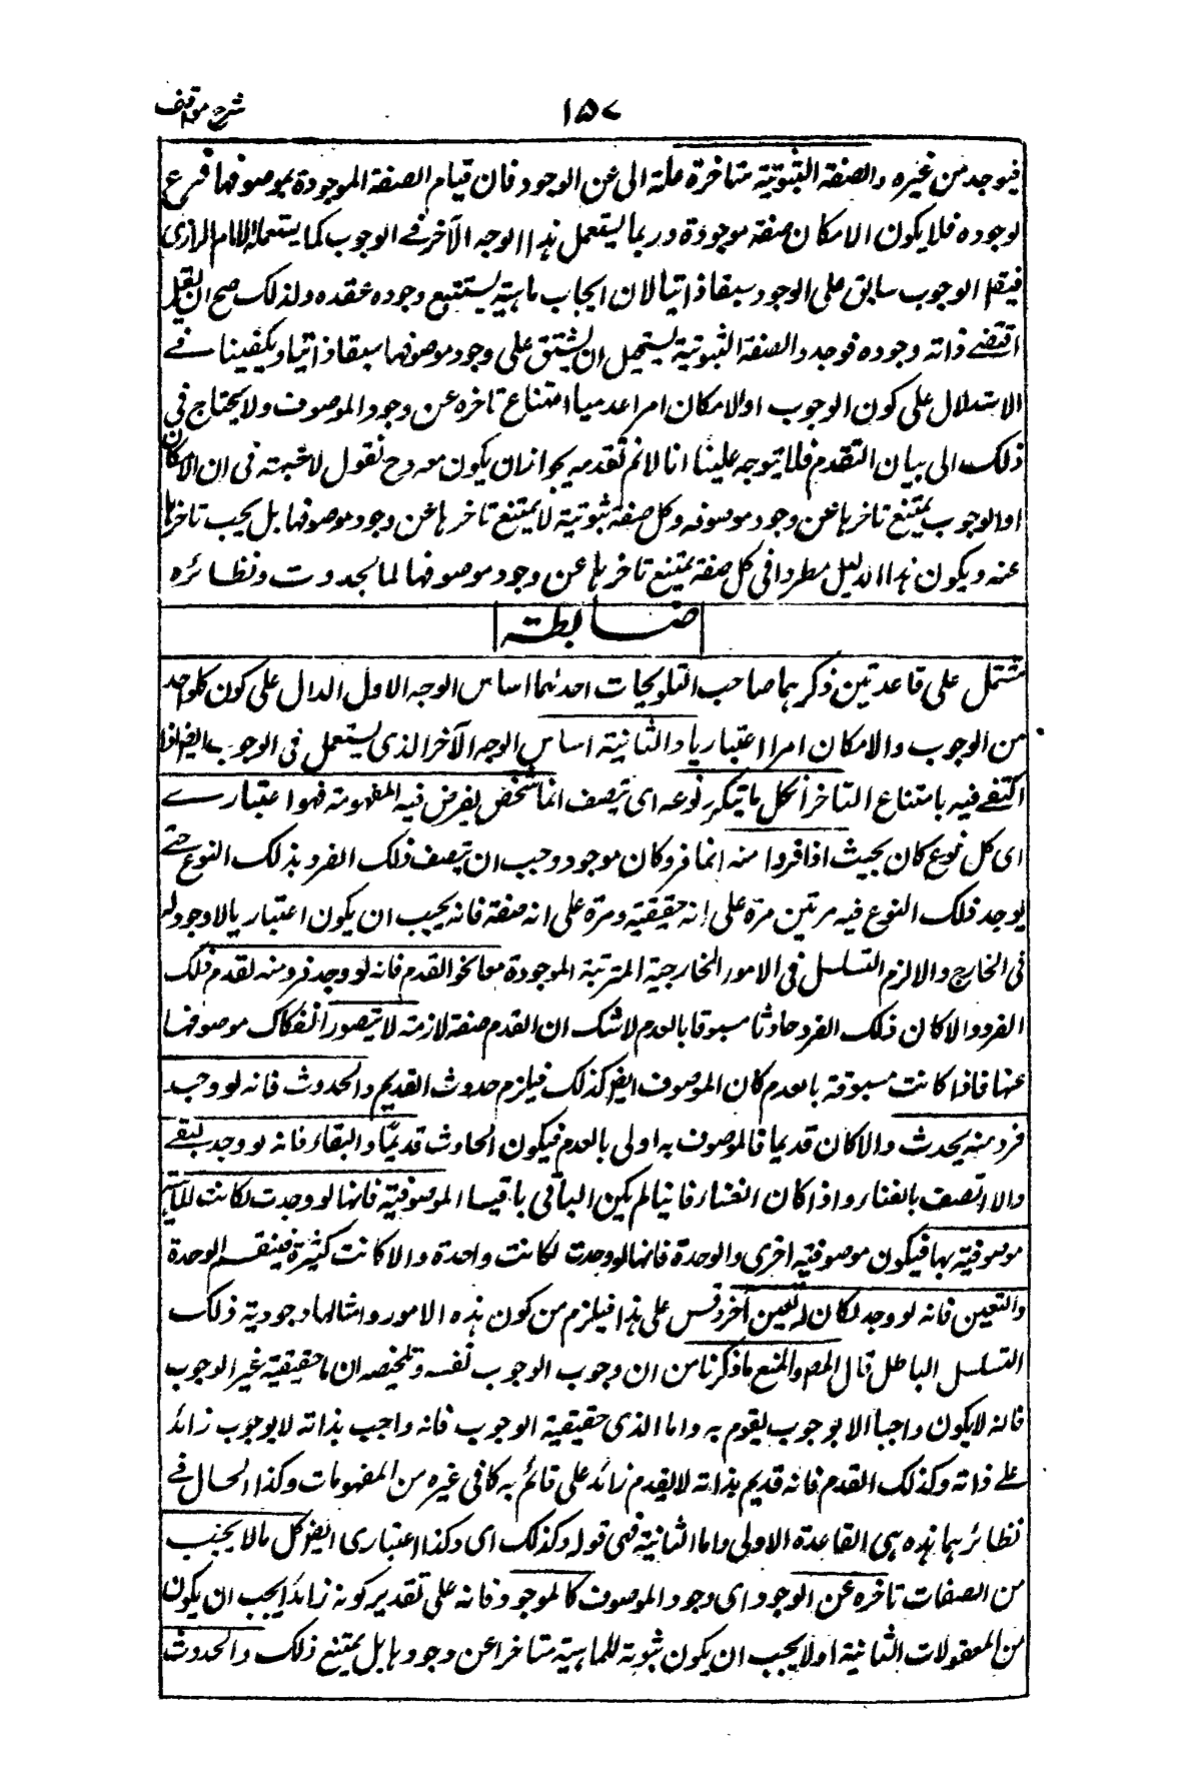 شرح مواقف
١٥٧
فيوجد من غيره والصفة الثبوتية متاخرة علة الى عن الوجود فان قيام الصفة الموجودة بموصوفها فرع
لوجوده فلا يكون الامكان صفة موجودة وربما يستعمل هذا الوجه الآخر في الوجوب كما يستعمله الامام الرازى
فيقم الوجوب سابق على الوجود سبقا ذاتيا لان ايجاب ماهية يستتبع وجوده عقده ولذلك صح ان يقل
اقتضى ذاته وجوده فوجد والصفة الثبوتية يستحيل ان يشتق على وجود موصوفها سبقا ذاتيا ويكفينا في
الاستدلال على كون الوجوب او الامكان امرا عدميا امتناع تاخره عن وجود الموصوف ولا يحتاج في
ذلك الى بيان التقدم فلا يتوجه علينا انا لانم تقدمه بجواز ان يكون معه وح نقول لا شبهته فى ان الامكان
او الوجوب يمتنع تاخرها عن وجود موصوفه وكل صفة ثبوتية لا يمتنع تاخرها عن وجود موصوفها بل يجب تاخرها
عنه ويكون هذا الدليل مطردا فى كل صفة يمتنع تاخرها عن وجود موصوفها لما لحدوث ونظائره
ضابطة
مشتمل على قاعدتين ذكرهما صاحب التلويحات احدهما اساس الوجه الاول الدال على كون كل واحد
من الوجوب والامكان امرا اعتباريا والثانية اساس الوجه الآخر الذى يستعمل فى الوجوب ايضا اذا
اكتفى فيه بامتناع التاخر كل ما يتكرر نوعه اى يتصف اىّ شخص يفرض فيه المفهومه فهو اعتبارى
اى كل نوع كان بحيث اذا فردا منه انما فرد كان موجود وجب ان يتصف ذلك الفرد بذلك النوع حتى
يوجد ذلك النوع فيه مرتين مرة على انه حقيقته ومرة على انه صفة فانه يجب ان يكون اعتباريا لا وجود له
فى الخارج والا لزم التسلسل فى الامور الخارجية المترتبة الموجودة معا نحو القدم فانه لو وجد فرد منه لقدم ذلك
الفرد والا كان ذلك الفرد حادثا مسبوقا بالعدم لا شك ان القدم صفة لازمة لا يتصور انفكاك موصوفها
عنها فاذا كانت مسبوقة بالعدم كان الموصوف ايضا كذلك فيلزم حدوث القديم والحدوث فانه لو وجد
فرد منه يحدث والا كان قديما فالموصوف به اولى بالعدم فيكون الحادث قديما والبقاء فانه لو وجد لبقى
والا اتصف بالفناء واذا كان الفناء فانيا لم يكن الباقى باقيا الموصوفية فانها لو وجدت لكانت الماهية
موصوفية بها فيكون موصوفيه اخرى والوحدة فانها لو وجدت لكانت واحدة والا كانت كثيرة فينقسم الوحدة
والتعين فانه لو وجد لكان له تعين آخر وقس على هذا فيلزم من كون هذه الامور وامثالها وجودية ذلك
التسلسل الباطل قال المص والمنع ما ذكرنا من ان وجوب الوجوب نفسه وتلخيصه ان ما حقيقية غير الوجوب
فانه لا يكون واجبا الا بوجوب يقوم به واما الذى حقيقية الوجوب فانه واجب بذاته لا بوجوب زائد
على ذاته وكذلك القدم فانه قديم بذاته لا بقدم زائد على قائم به كما فى غيره من المفهومات وكذا الحال فى
نظائرهما هذه هى القاعدة الاولى واما الثانية فهى قوله وكذلك اى وكذا اعتبارى ايضا كل ما لا يجب
من الصفات تاخره عن الوجود اى وجود الموصوف كالموجود فانه على تقدير كونه زائدا يجب ان يكون
من المعقولات الثانية اولا يجب ان يكون ثبوته للماهية متاخرا عن وجودها بل يمتنع ذلك والحدوث